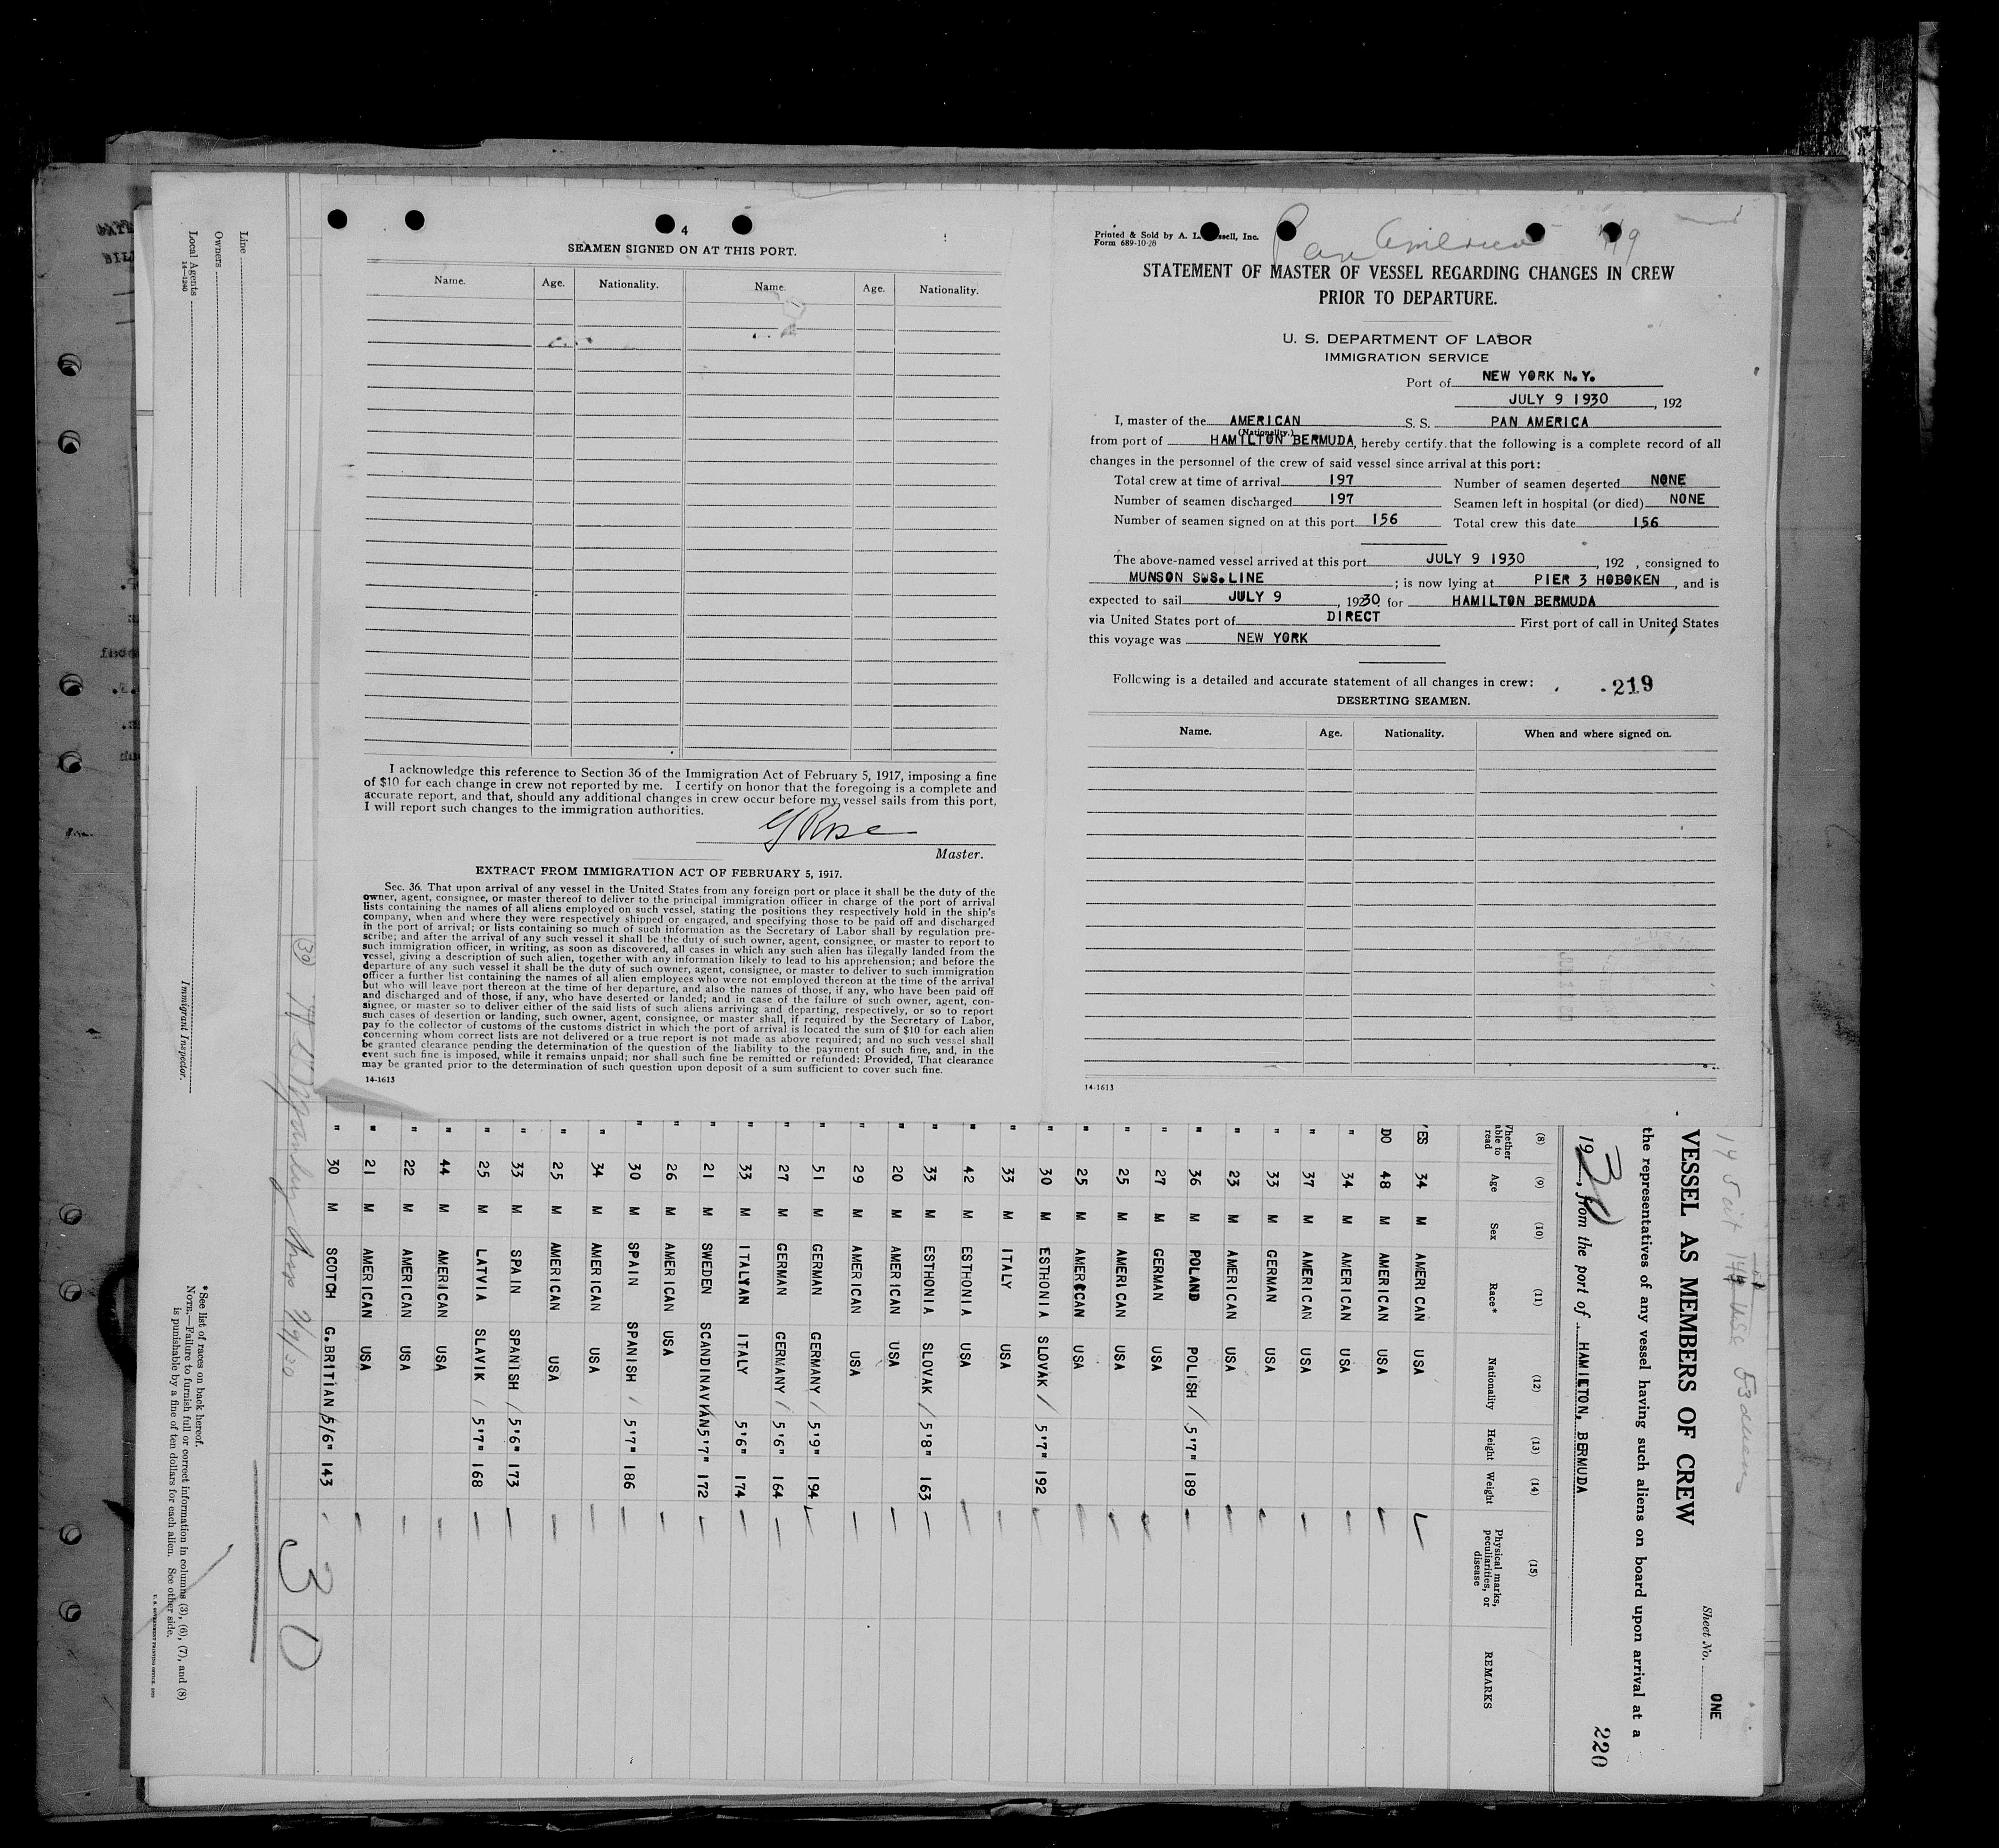 4
SEAMEN SIGNED ON AT THIS PORT.
Name. Age. Nationality. Name. Age. Nationality.
I acknowledge this reference to Section 36 of the Immigration Act of February 5, 1917, imposing a fine
of $10 for each change in crew not reported by me. I certify on honor that the foregoing is a complete and
accurate report, and that, should any additional changes in crew occur before my vessel sails from this port,
I will report such changes to the immigration authorities.
G Rose
Master.
EXTRACT FROM IMMIGRATION ACT OF FEBRUARY 5, 1917.
Sec. 36. That upon arrival of any vessel in the United States from any foreign port or place it shall be the duty of the
owner, agent, consignee, or master thereof to deliver to the principal immigration officer in charge of the port of arrival
lists containing the names of all aliens employed on such vessel, stating the positions they respectively hold in the ship's
company, when and where they were respectively shipped or engaged, and specifying those to be paid off and discharged
in the port of arrival; or lists containing so much of such information as the Secretary of Labor shall by regulation pre-
scribe; and after the arrival of any such vessel it shall be the duty of such owner, agent, consignee, or master to report to
such immigration officer, in writing, as soon as discovered, all cases in which any such alien has illegally landed from the
vessel, giving a description of such alien, together with any information likely to lead to his apprehension; and before the
departure of any such vessel it shall be the duty of such owner, agent, consignee, or master to deliver to such immigration
officer a further list containing the names of all alien employees who were not employed thereon at the time of the arrival
but who will leave port thereon at the time of her departure, and also the names of those, if any, who have been paid off
and discharged and of those, if any, who have deserted or landed; and in case of the failure of such owner, agent, con-
signee, or master so to deliver either of the said lists of such aliens arriving and departing, respectively, or so to report
such cases of desertion or landing, such owner, agent, consignee, or master shall, if required by the Secretary of Labor,
pay to the collector of customs of the customs district in which the port of arrival is located the sum of $10 for each alien
concerning whom correct lists are not delivered or a true report is not made as above required; and no such vessel shall
be granted clearance pending the determination of the question of the liability to the payment of such fine, and, in the
event such fine is imposed, while it remains unpaid; nor shall such fine be remitted or refunded: Provided, That clearance
may be granted prior to the determination of such question upon deposit of a sum sufficient to cover such fine.
14-1613
Printed & Sold by A. L. Inc.
Form 689-10-28
Pan America 7/9
STATEMENT OF MASTER OF VESSEL REGARDING CHANGES IN CREW
PRIOR TO DEPARTURE.
U. S. DEPARTMENT OF LABOR
IMMIGRATION SERVICE
Port of NEW YORK N.Y.
JULY 9 1930, 192
I, master of the AMERICAN S. S. PAN AMERICA
(Nationality.)
from port of HAMILTON BERMUDA, hereby certify that the following is a complete record of all
changes in the personnel of the crew of said vessel since arrival at this port:
Total crew at time of arrival 197 Number of seamen deserted NONE
Number of seamen discharged 197 Seamen left in hospital (or died) NONE
Number of seamen signed on at this port 156 Total crew this date 156
The above-named vessel arrived at this port JULY 9 1930, 192 , consigned to
MUNSON S.S. LINE; is now lying at PIER 3 HOBOKEN, and is
expected to sail JULY 9, 1930 for HAMILTON BERMUDA
via United States port of DIRECT First port of call in United States
this voyage was NEW YORK
Following is a detailed and accurate statement of all changes in crew:
219
DESERTING SEAMEN.
Name. Age. Nationality. When and where signed on.
14-1613
Sheet No. ONE
VESSEL AS MEMBERS OF CREW
the representatives of any vessel having such aliens on board upon arrival at a
1930, from the port of HAMILTON, BERMUDA
220
(8) (9) (10) (11) (12) (13) (14) (15)
Whether able to read Age Sex Race* Nationality Height Weight Physical marks, peculiarities, or disease REMARKS
YES 34 M AMERICAN USA
DO 48 M AMERICAN USA
" 34 M AMERICAN USA
" 37 M AMERICAN USA
" 33 M GERMAN USA
" 23 M AMERICAN USA
" 36 M POLAND POLISH / 5'7" 189
" 27 M GERMAN USA
" 25 M AMERICAN USA
" 25 M AMERCCAN USA
" 30 M ESTHONIA SLOVAK / 5'7" 192
" 33 M ITALY USA
" 42 M ESTHONIA USA
" 33 M ESTHONIA SLOVAK / 5'8" 163
" 20 M AMERICAN USA
" 29 M AMERICAN USA
" 51 M GERMAN GERMANY / 5'9" 194
" 27 M GERMAN GERMANY / 5'6" 164
" 33 M ITALYAN ITALY 5'6" 174
" 21 M SWEDEN SCANDINAVIAN 5'7" 172
" 26 M AMERICAN USA
" 30 M SPAIN SPANISH / 5'7" 186
" 34 M AMERICAN USA
" 25 M AMERICAN USA
" 33 M SPAIN SPANISH / 5'6" 173
" 25 M LATVIA SLAVIK / 5'7" 168
" 44 M AMERICAN USA
" 22 M AMERICAN USA
" 21 M AMERICAN USA
" 30 M SCOTCH G.BRITIAN 5/6" 143
30
7/9/30
30
Line
Owners
Local Agents
14-1240
Immigrant Inspector.
*See list of races on back hereof.
NOTE.—Failure to furnish full or correct information in columns (3), (6), (7), and (8)
is punishable by a fine of ten dollars for each alien. See other side.